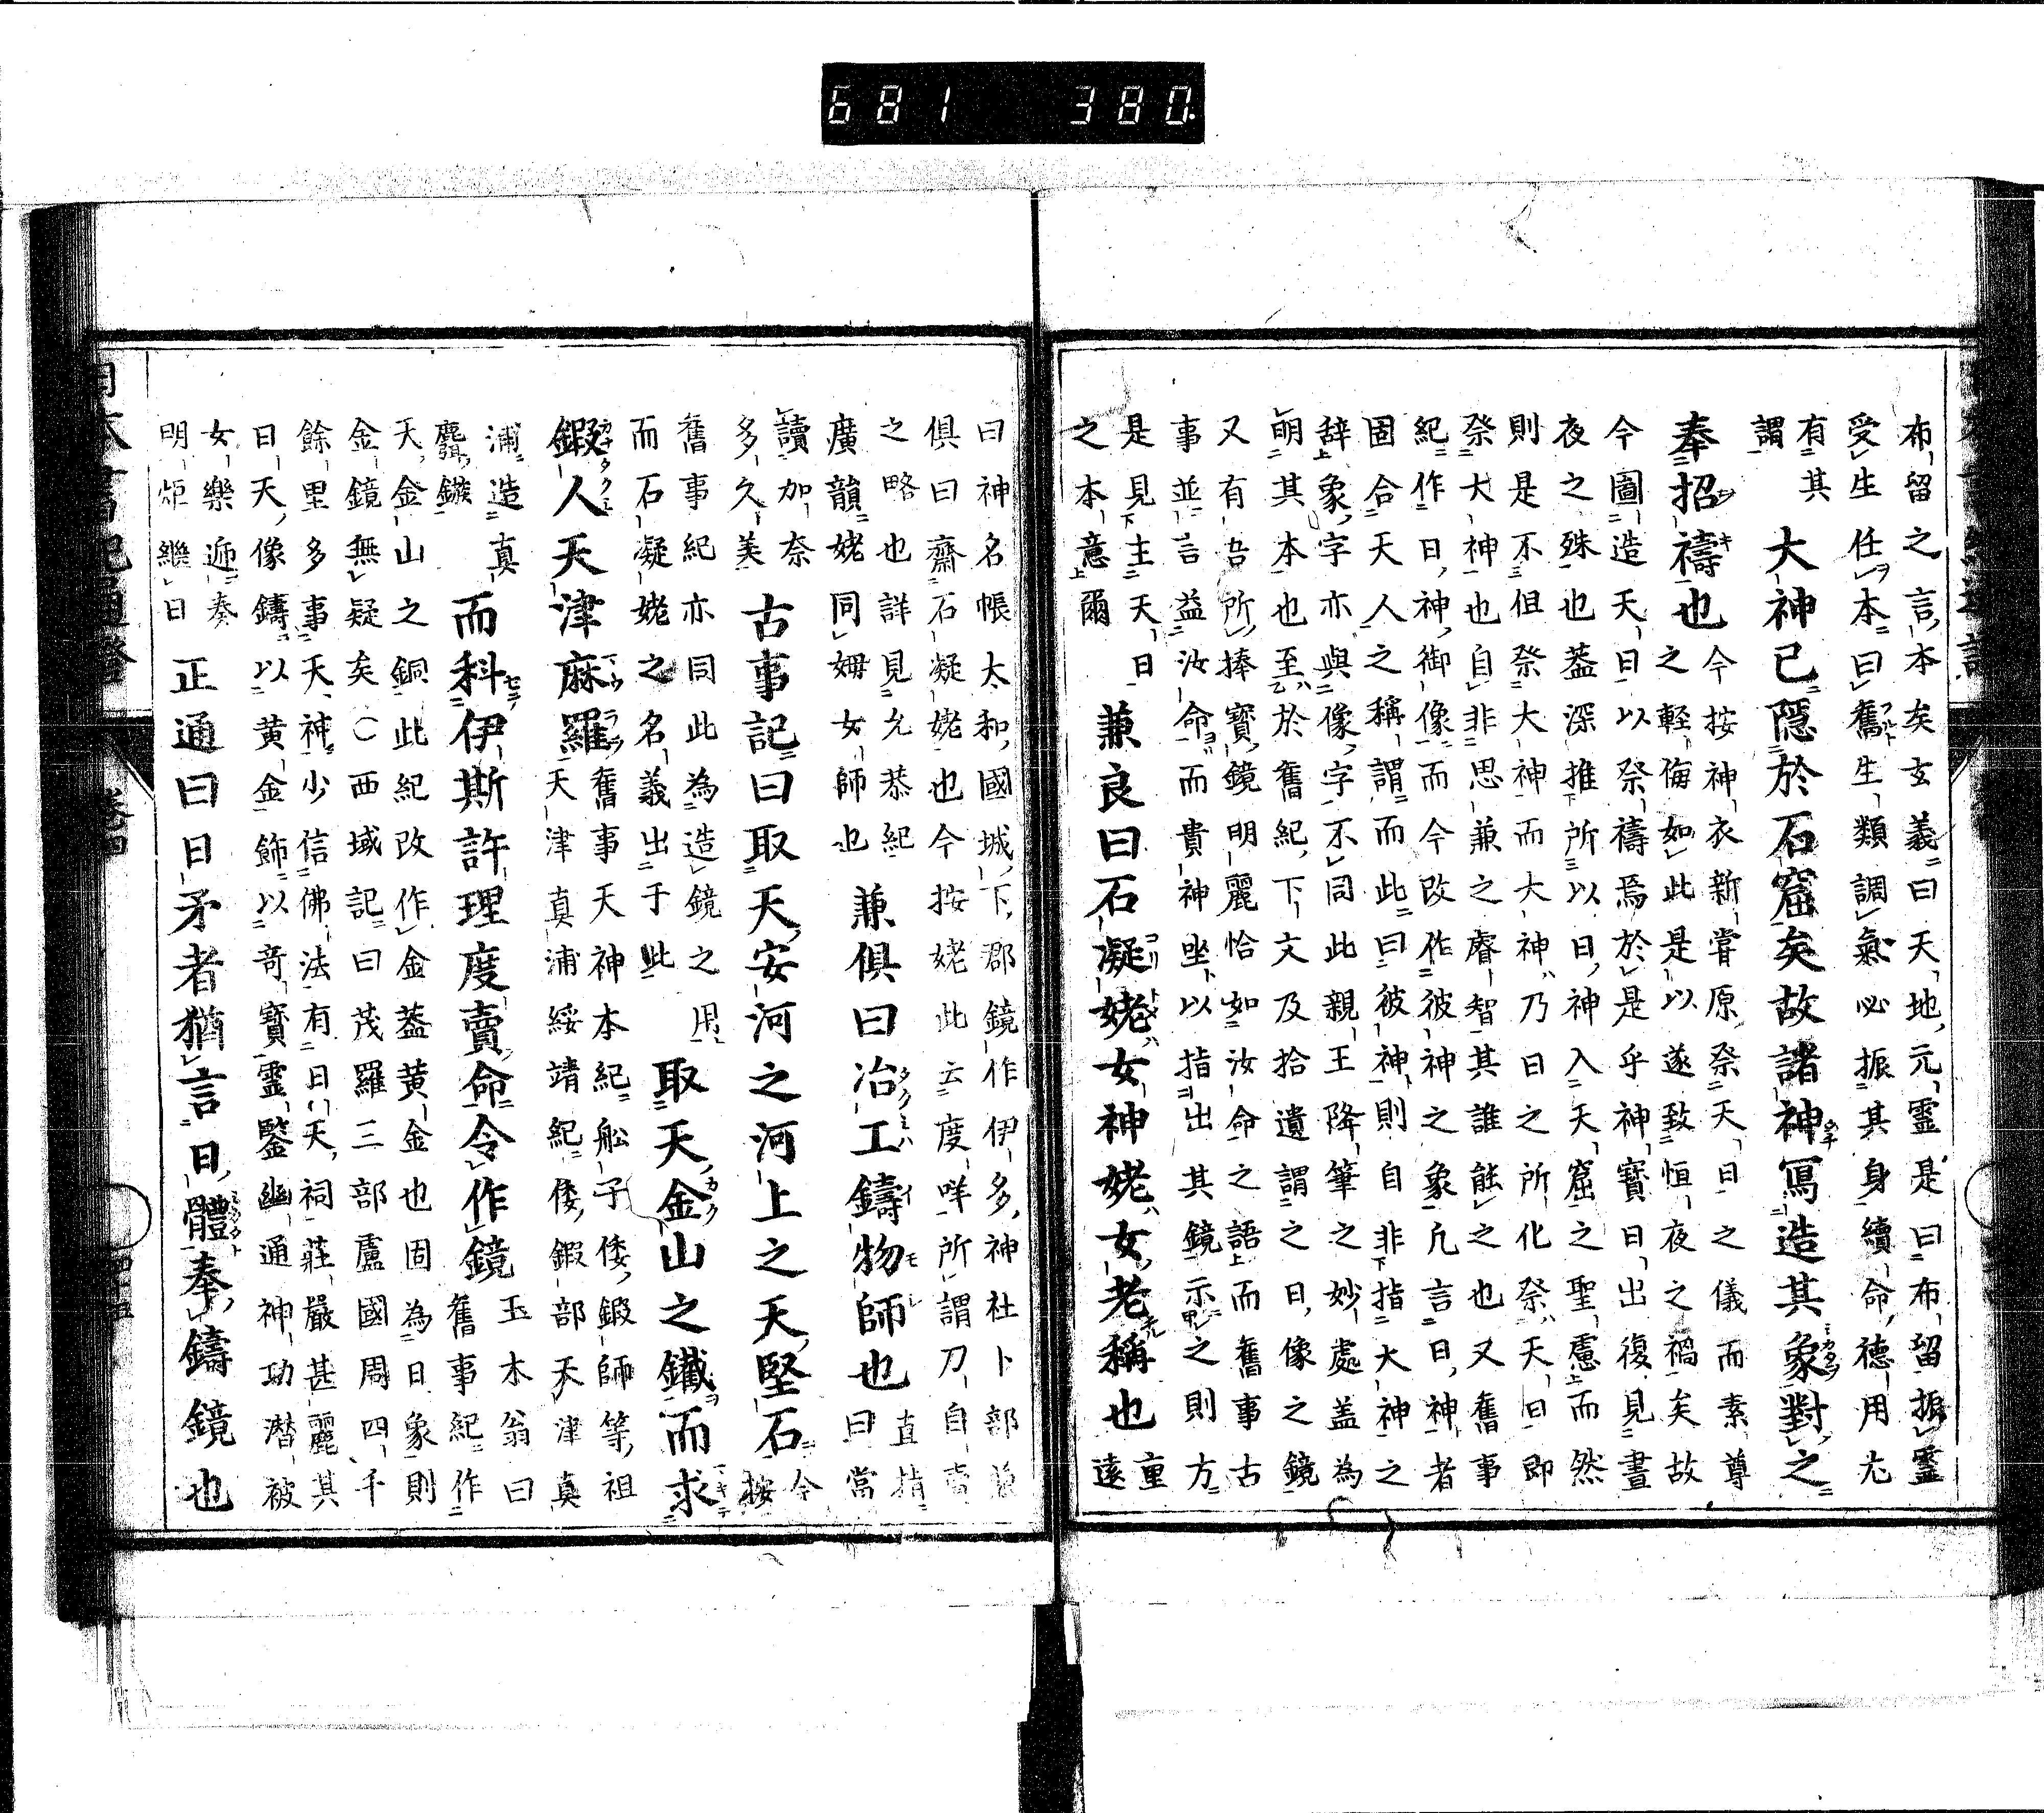 681 380
布留之言本矣玄義曰天地元靈是曰布留振靈
受生任本曰舊生類調氣必振其身續命德用尤
有其
謂
大神已隱於石窟矣故諸神寫造其象對之
奉招禱也
今按神衣新嘗原祭天日之儀而素尊
之輕侮如此是以遂致恒夜之禍矣故
今圖造天日以祭禱焉於是乎神寶日出復見晝
夜之殊也蓋深推所以日神入天窟之聖慮而然
則是不但祭大神而大神乃日之所化祭天日即
祭大神也自非思兼之睿智其誰能之也又舊事
紀作日神御像而今改作彼神之象凡言日神者
固合天人之稱謂而此曰彼神則自非指大神之
辞象字亦與像字不同此親王降筆之妙處蓋為
明其本也至於舊紀下文及拾遺謂之日像之鏡
又有吾所捧寶鏡明麗恰如汝命之語而舊事古
事並言益汝命而貴神坐以指出其鏡示之則方
是見主天日
之本意爾
兼良曰石凝姥女神姥女老稱也
重
遠
曰神名帳大和國城下郡鏡作伊多神社卜部兼
俱曰齋石凝姥也今按姥此云度咩所謂刀自
之略也詳見允恭紀
廣韻姥同姆女師也
兼俱曰冶工鑄物師也
直指
曰當
讀加奈
多久美
古事記曰取天安河之河上之天堅石
今
按
舊事紀亦同此為造鏡之用
而石凝姥之名義出于此
取天金山之鐵而求
鍛人天津麻羅
舊事天神本紀船子倭鍛師等祖
天津真浦綏靖紀倭鍛部天津真
浦造真
麛鏃
而科伊斯許理度賣命令作鏡
玉木翁曰
舊事紀作
天金山之銅此紀改作金蓋黃金也固為日象則
金鏡無疑矣○西域記曰茂羅三部盧國周四千
餘里多事天神少信佛法有日天祠莊嚴甚麗其
日天像鑄以黃金飾以奇寶靈鑒幽通神功潜被
女樂遞奏
明炬繼日
正通曰日矛者猶言日體奉鑄鏡也